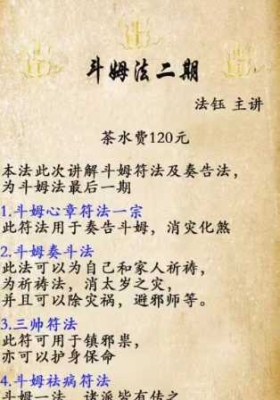 斗姆法二期
法钰 主讲
茶水费120元
本法此次讲解斗姆符法及奏告法，
为斗姆法最后一期
1.斗姆心章符法一宗
此符法用于奏告斗姆，消灾化煞
2.斗姆奏斗法
此法可以为自己和家人祈祷，
为祈祷法，消太岁之灾，
并且可以除灾祸，避邪师等。
3.三帅符法
此符可用于镇邪祟，
亦可以护身保命
4.斗姆祛病符法
斗姆一法，诸派皆有传之